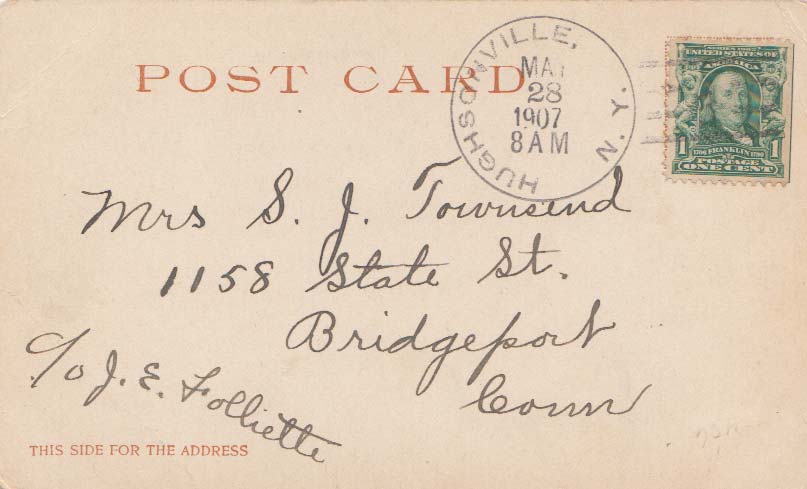 POST CARD
HUGHSONVILLE, N.Y.
MAY
28
1907
8 AM
SERIES 1902
UNITED STATES OF
AMERICA
1 1706 FRANKLIN 1790 1
POSTAGE
ONE CENT
Mrs S. J. Townsend
1158 State St.
Bridgeport
Conn
c/o J. E. Folliette
THIS SIDE FOR THE ADDRESS